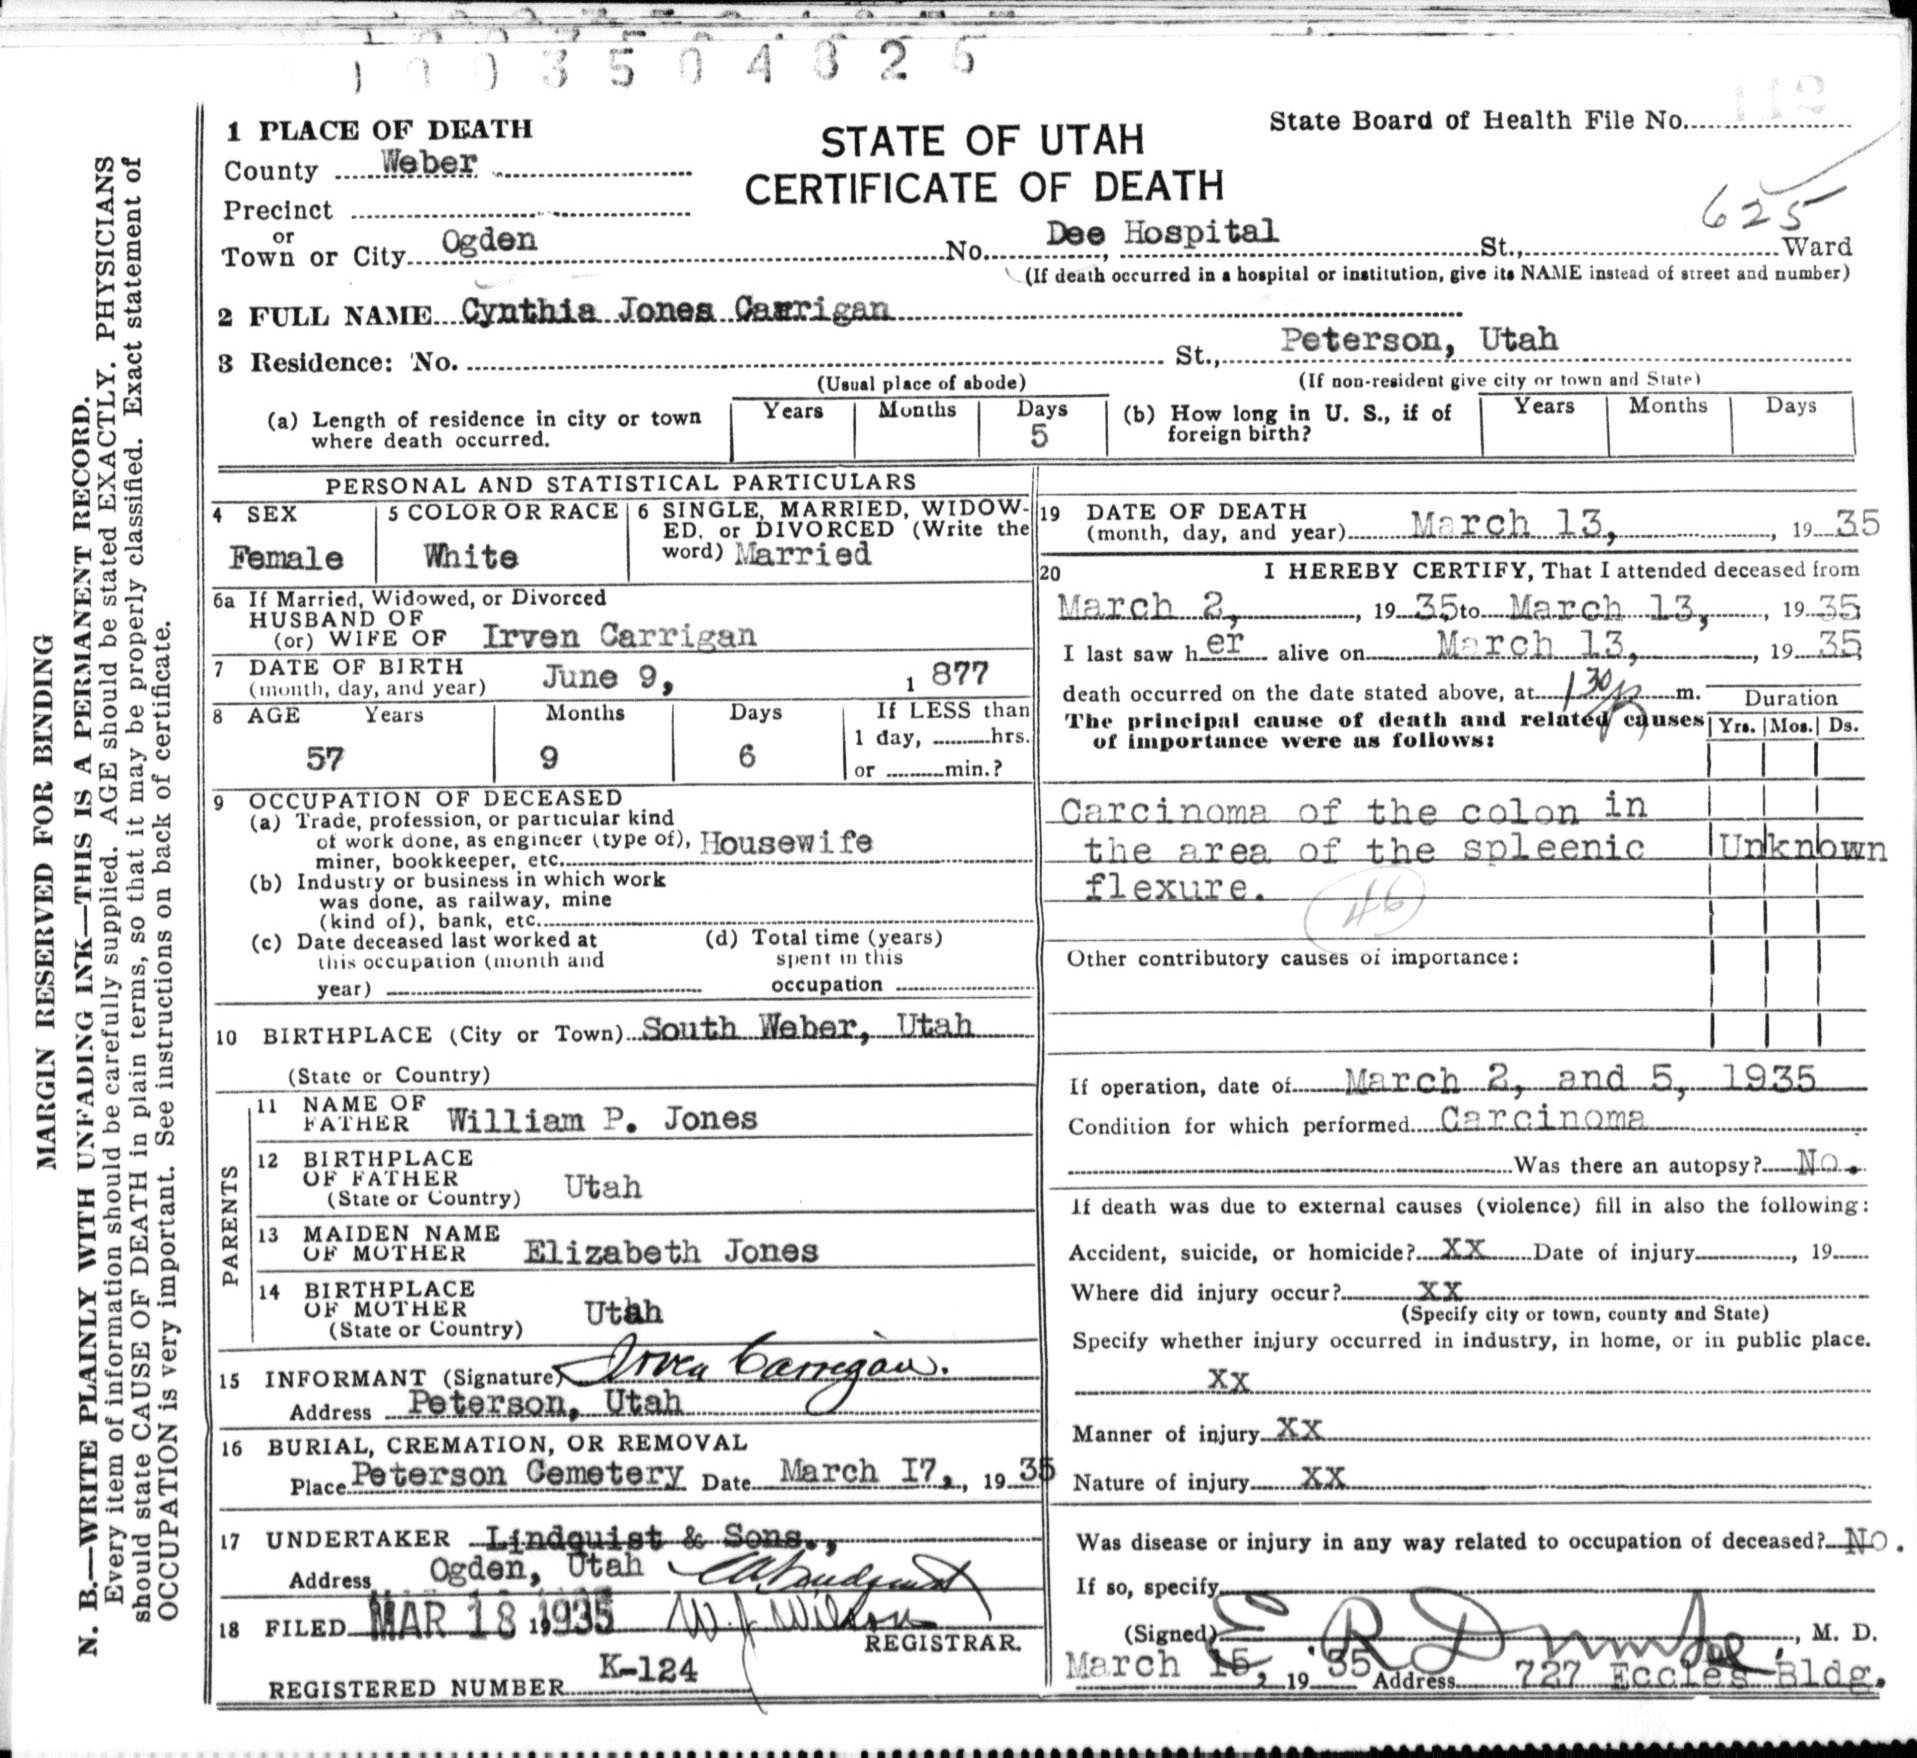 1003504826
MARGIN RESERVED FOR BINDING
N. B.—WRITE PLAINLY WITH UNFADING INK—THIS IS A PERMANENT RECORD.
Every item of information should be carefully supplied. AGE should be stated EXACTLY. PHYSICIANS
should state CAUSE OF DEATH in plain terms, so that it may be properly classified. Exact statement of
OCCUPATION is very important. See instructions on back of certificate.
STATE OF UTAH
CERTIFICATE OF DEATH
State Board of Health File No. 112
625
1 PLACE OF DEATH
County Weber
Precinct
or
Town or City Ogden No. Dee Hospital St., Ward
(If death occurred in a hospital or institution, give its NAME instead of street and number)
2 FULL NAME Cynthia Jones Carrigan
3 Residence: No. St., Peterson, Utah
(Usual place of abode) (If non-resident give city or town and State)
(a) Length of residence in city or town where death occurred. Years Months Days 5
(b) How long in U. S., if of foreign birth? Years Months Days
PERSONAL AND STATISTICAL PARTICULARS
4 SEX Female
5 COLOR OR RACE White
6 SINGLE, MARRIED, WIDOW-
ED, or DIVORCED (Write the
word) Married
6a If Married, Widowed, or Divorced
HUSBAND OF
(or) WIFE OF Irven Carrigan
7 DATE OF BIRTH
(month, day, and year) June 9, 1 877
8 AGE Years Months Days If LESS than
57 9 6 1 day, hrs.
or min.?
9 OCCUPATION OF DECEASED
(a) Trade, profession, or particular kind
of work done, as engineer (type of), Housewife
miner, bookkeeper, etc.
(b) Industry or business in which work
was done, as railway, mine
(kind of), bank, etc.
(c) Date deceased last worked at
this occupation (month and
year)
(d) Total time (years)
spent in this
occupation
10 BIRTHPLACE (City or Town) South Weber, Utah
(State or Country)
PARENTS
11 NAME OF
FATHER William P. Jones
12 BIRTHPLACE
OF FATHER
(State or Country) Utah
13 MAIDEN NAME
OF MOTHER Elizabeth Jones
14 BIRTHPLACE
OF MOTHER
(State or Country) Utah
15 INFORMANT (Signature) Irven Carrigan.
Address Peterson, Utah
16 BURIAL, CREMATION, OR REMOVAL
Place Peterson Cemetery Date March I7, , 19 35
17 UNDERTAKER Lindquist & Sons.,
Address Ogden, Utah
18 FILED MAR 18 1935 W. J. Wilson
REGISTRAR.
REGISTERED NUMBER K-124
19 DATE OF DEATH
(month, day, and year) March 13, , 19 35
20 I HEREBY CERTIFY, That I attended deceased from
March 2, , 19 35 to March 13, , 19 35
I last saw her alive on March 13, , 19 35
death occurred on the date stated above, at 1 30 p m.
The principal cause of death and related causes
of importance were as follows:
Duration
Yrs. Mos. Ds.
Carcinoma of the colon in
the area of the spleenic Unknown
flexure.
46
Other contributory causes of importance:
If operation, date of March 2, and 5, 1935
Condition for which performed Carcinoma
Was there an autopsy? No.
If death was due to external causes (violence) fill in also the following:
Accident, suicide, or homicide? XX Date of injury , 19
Where did injury occur? XX
(Specify city or town, county and State)
Specify whether injury occurred in industry, in home, or in public place.
XX
Manner of injury XX
Nature of injury XX
Was disease or injury in any way related to occupation of deceased? No.
If so, specify
(Signed) E R Dumke, M. D.
March 15, 19 35 Address 727 Eccles Bldg.